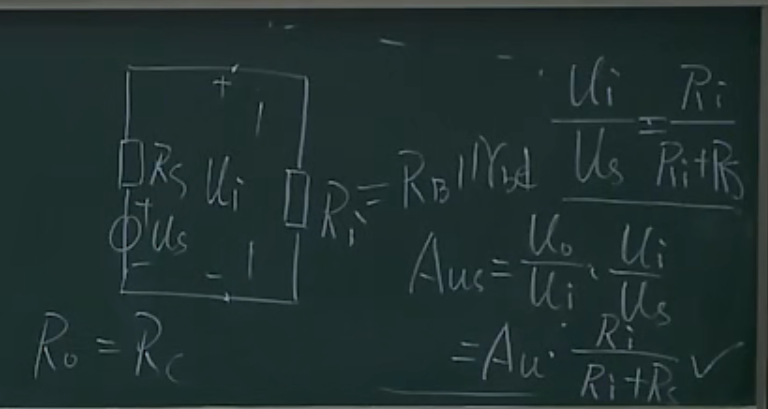 +
Rs
Ui
+
Us
-
-
Ri = RB // rbe
Ui/Us = Ri/(Ri+Rs)
Aus = Uo/Ui · Ui/Us
= Au · Ri/(Ri+Rs) ✓
Ro = Rc